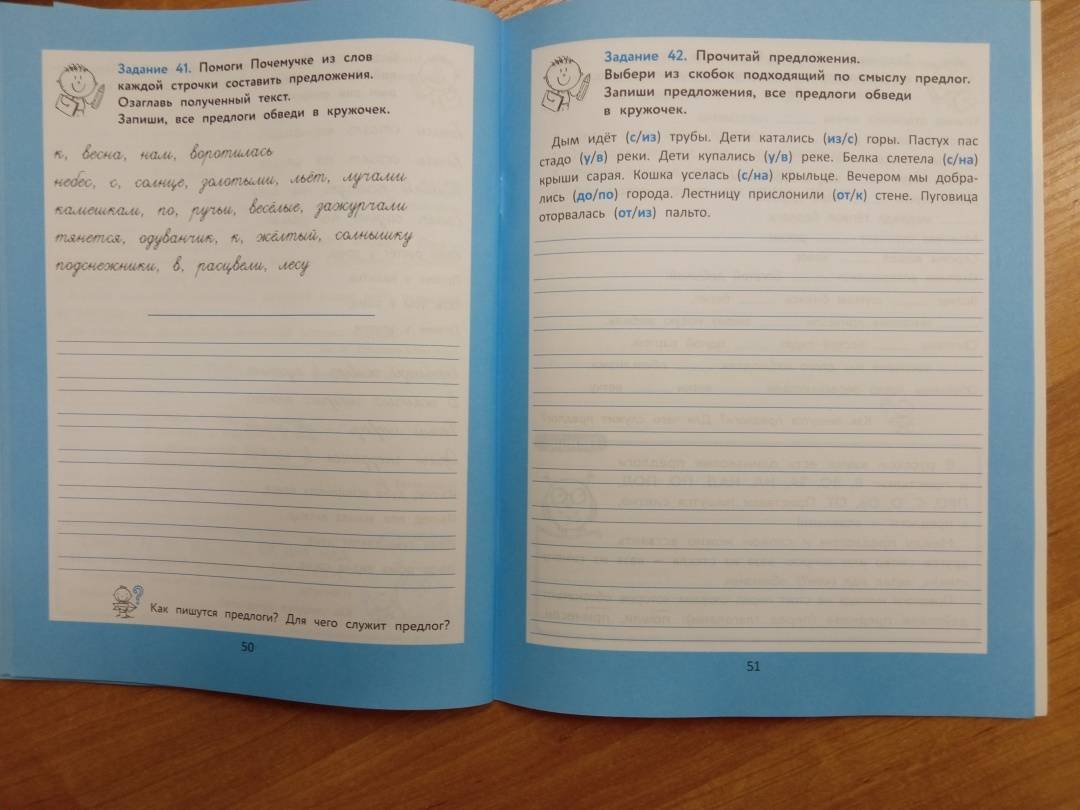 Задание 41. Помоги Почемучке из слов
каждой строчки составить предложения.
Озаглавь полученный текст.
Запиши, все предлоги обведи в кружочек.
к, весна, нам, воротилась
небес, с, солнце, золотыми, льёт, лучами
камешкам, по, ручьи, весёлые, зажурчали
тянется, одуванчик, к, жёлтый, солнышку
подснежники, в, расцвели, лесу
Как пишутся предлоги? Для чего служит предлог?
50
Задание 42. Прочитай предложения.
Выбери из скобок подходящий по смыслу предлог.
Запиши предложения, все предлоги обведи
в кружочек.
Дым идёт (с/из) трубы. Дети катались (из/с) горы. Пастух пас
стадо (у/в) реки. Дети купались (у/в) реке. Белка слетела (с/на)
крыши сарая. Кошка уселась (с/на) крыльце. Вечером мы добра-
лись (до/по) города. Лестницу прислонили (от/к) стене. Пуговица
оторвалась (от/из) пальто.
51